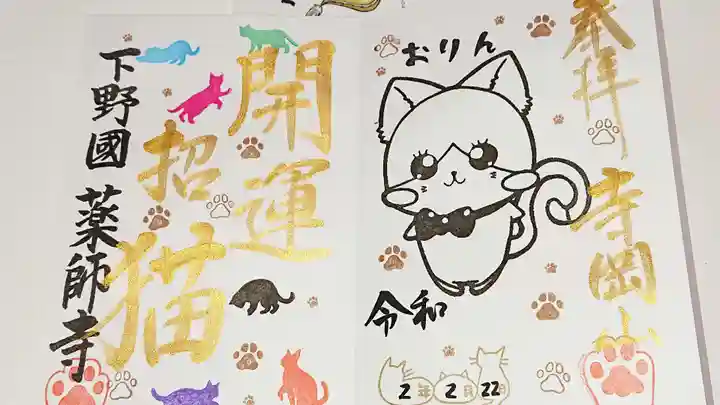 奉拝
寺岡山
おりん
令和
2年2月22日
開運
招猫
下野國 薬師寺